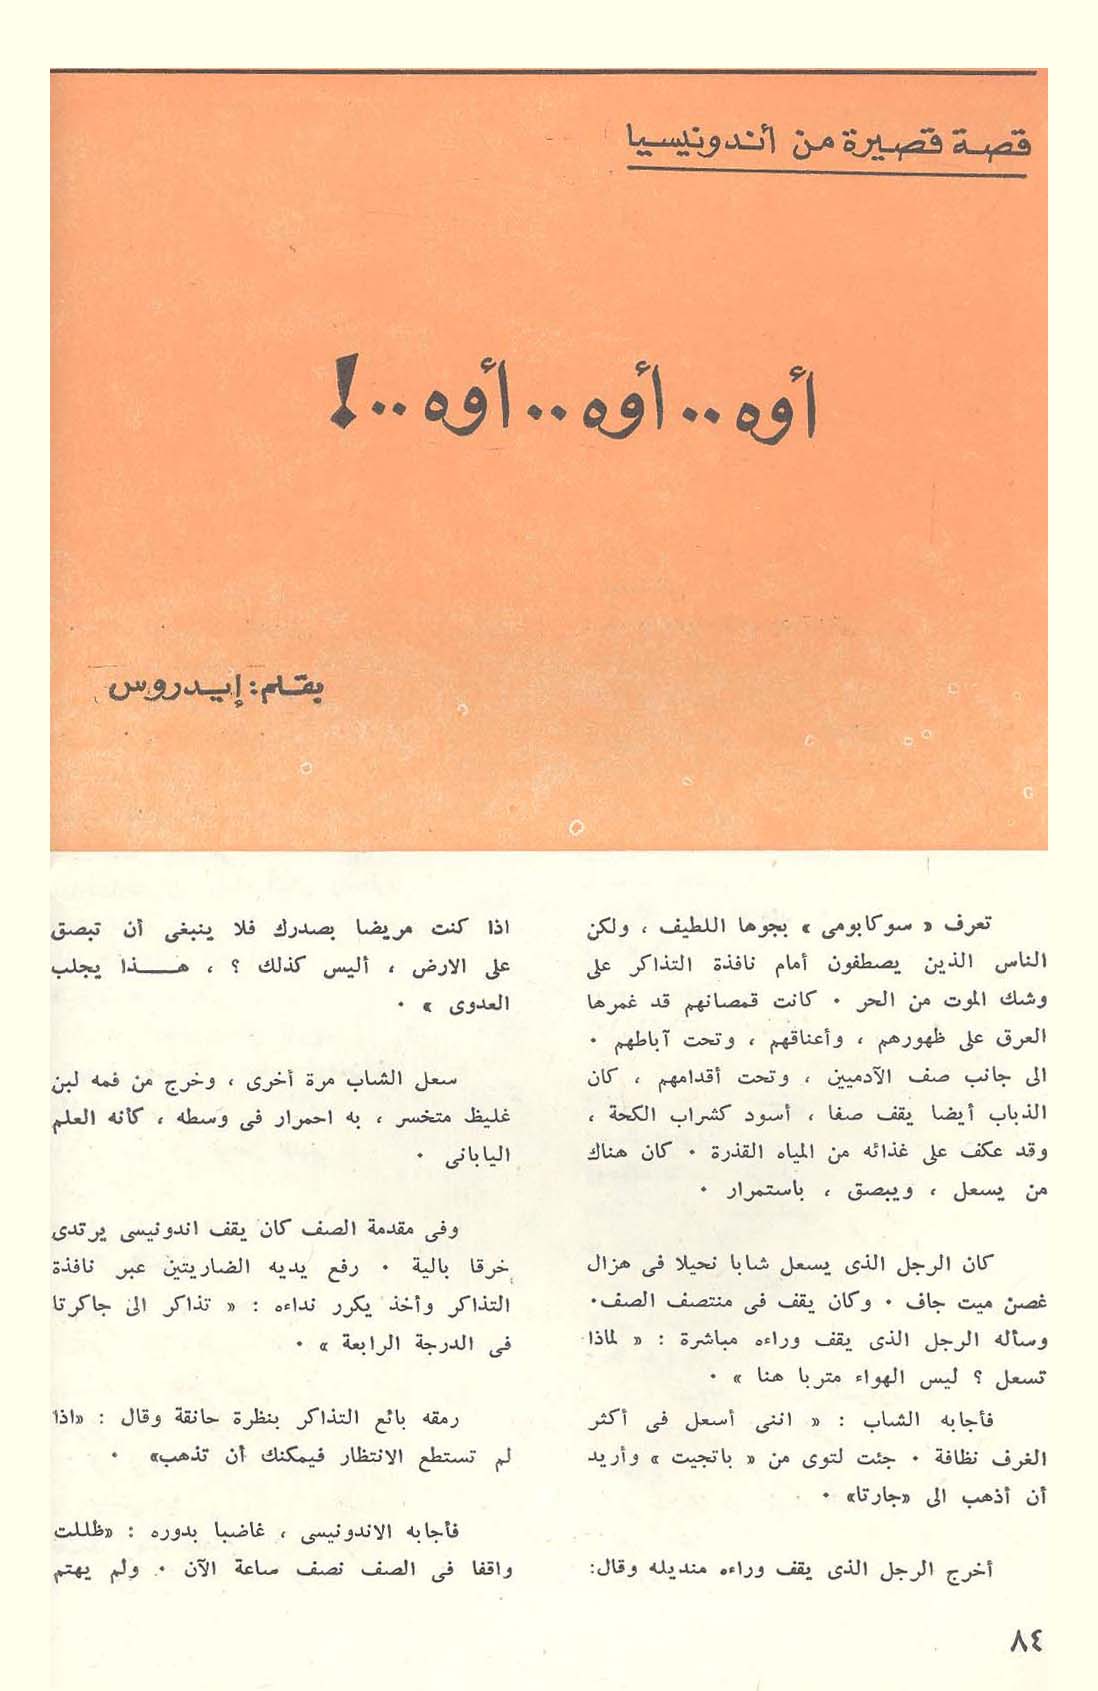 قصة قصيرة من أندونيسيا
أوه .. أوه .. أوه ..!
بقلم: إيدروس
تعرف « سوكابومى » بجوها اللطيف ، ولكن
الناس الذين يصطفون أمام نافذة التذاكر على
وشك الموت من الحر . كانت قمصانهم قد غمرها
العرق على ظهورهم ، وأعناقهم ، وتحت آباطهم .
الى جانب صف الآدميين ، وتحت أقدامهم ، كان
الذباب أيضا يقف صفا ، أسود كشراب الكحة ،
وقد عكف على غذائه من المياه القذرة . كان هناك
من يسعل ، ويبصق ، باستمرار .
كان الرجل الذى يسعل شابا نحيلا فى هزال
غصن ميت جاف . وكان يقف فى منتصف الصف.
وسأله الرجل الذى يقف وراءه مباشرة : « لماذا
تسعل ؟ ليس الهواء متربا هنا » .
فأجابه الشاب : « اننى أسعل فى أكثر
الغرف نظافة . جئت لتوى من « باتجيت » وأريد
أن أذهب الى «جارتا» .
أخرج الرجل الذى يقف وراءه منديله وقال:
اذا كنت مريضا بصدرك فلا ينبغى أن تبصق
على الارض ، أليس كذلك ؟ ، هـــذا يجلب
العدوى » .
سعل الشاب مرة أخرى ، وخرج من فمه لبن
غليظ متخسر ، به احمرار فى وسطه ، كأنه العلم
اليابانى .
وفى مقدمة الصف كان يقف اندونيسى يرتدى
خرقا بالية . رفع يديه الضاريتين عبر نافذة
التذاكر وأخذ يكرر نداءه : « تذاكر الى جاكرتا
فى الدرجة الرابعة » .
رمقه بائع التذاكر بنظرة حانقة وقال : «اذا
لم تستطع الانتظار فيمكنك أن تذهب» .
فأجابه الاندونيسى ، غاضبا بدوره : «ظللت
واقفا فى الصف نصف ساعة الآن . ولم يهتم
٨٤